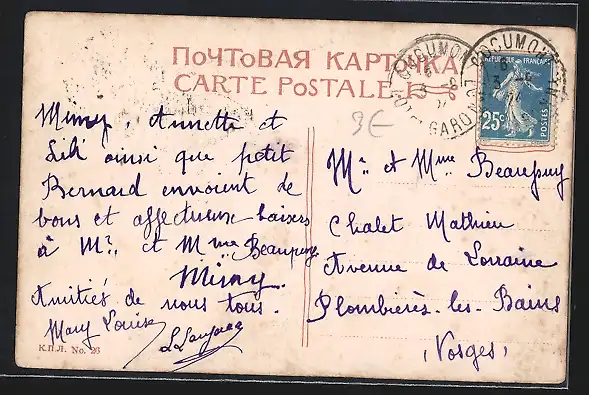 ПОЧТОВАЯ КАРТОЧКА
CARTE POSTALE
COCUMONT
LOT-ET-GARONNE
COCUMONT
RÉPUBLIQUE FRANÇAISE
25c
POSTES
3€
Mimy, Annette et
Lili ainsi que petit
Bernard envoient de
bons et affectueux baisers
à Mr. et Mme Beaupuy.
Mimy.
Amitiés de nous tous.
Mary Louise
К.П.Л. No. 26
Mr et Mme Beaupuy
Chalet Mathieu
Avenue de Lorraine
Plombières-les-Bains
(Vosges)